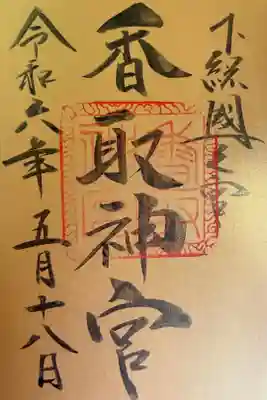 下総國一之宮
香取神宮
令和六年 五月十八日